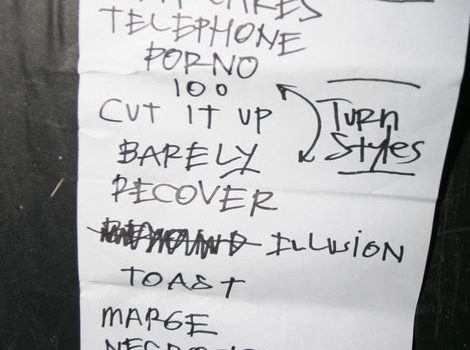 TELEPHONE
PORNO
100
CUT IT UP
Turn
Styles
BARELY
RECOVER
ILLUSION
TOAST
MARGE